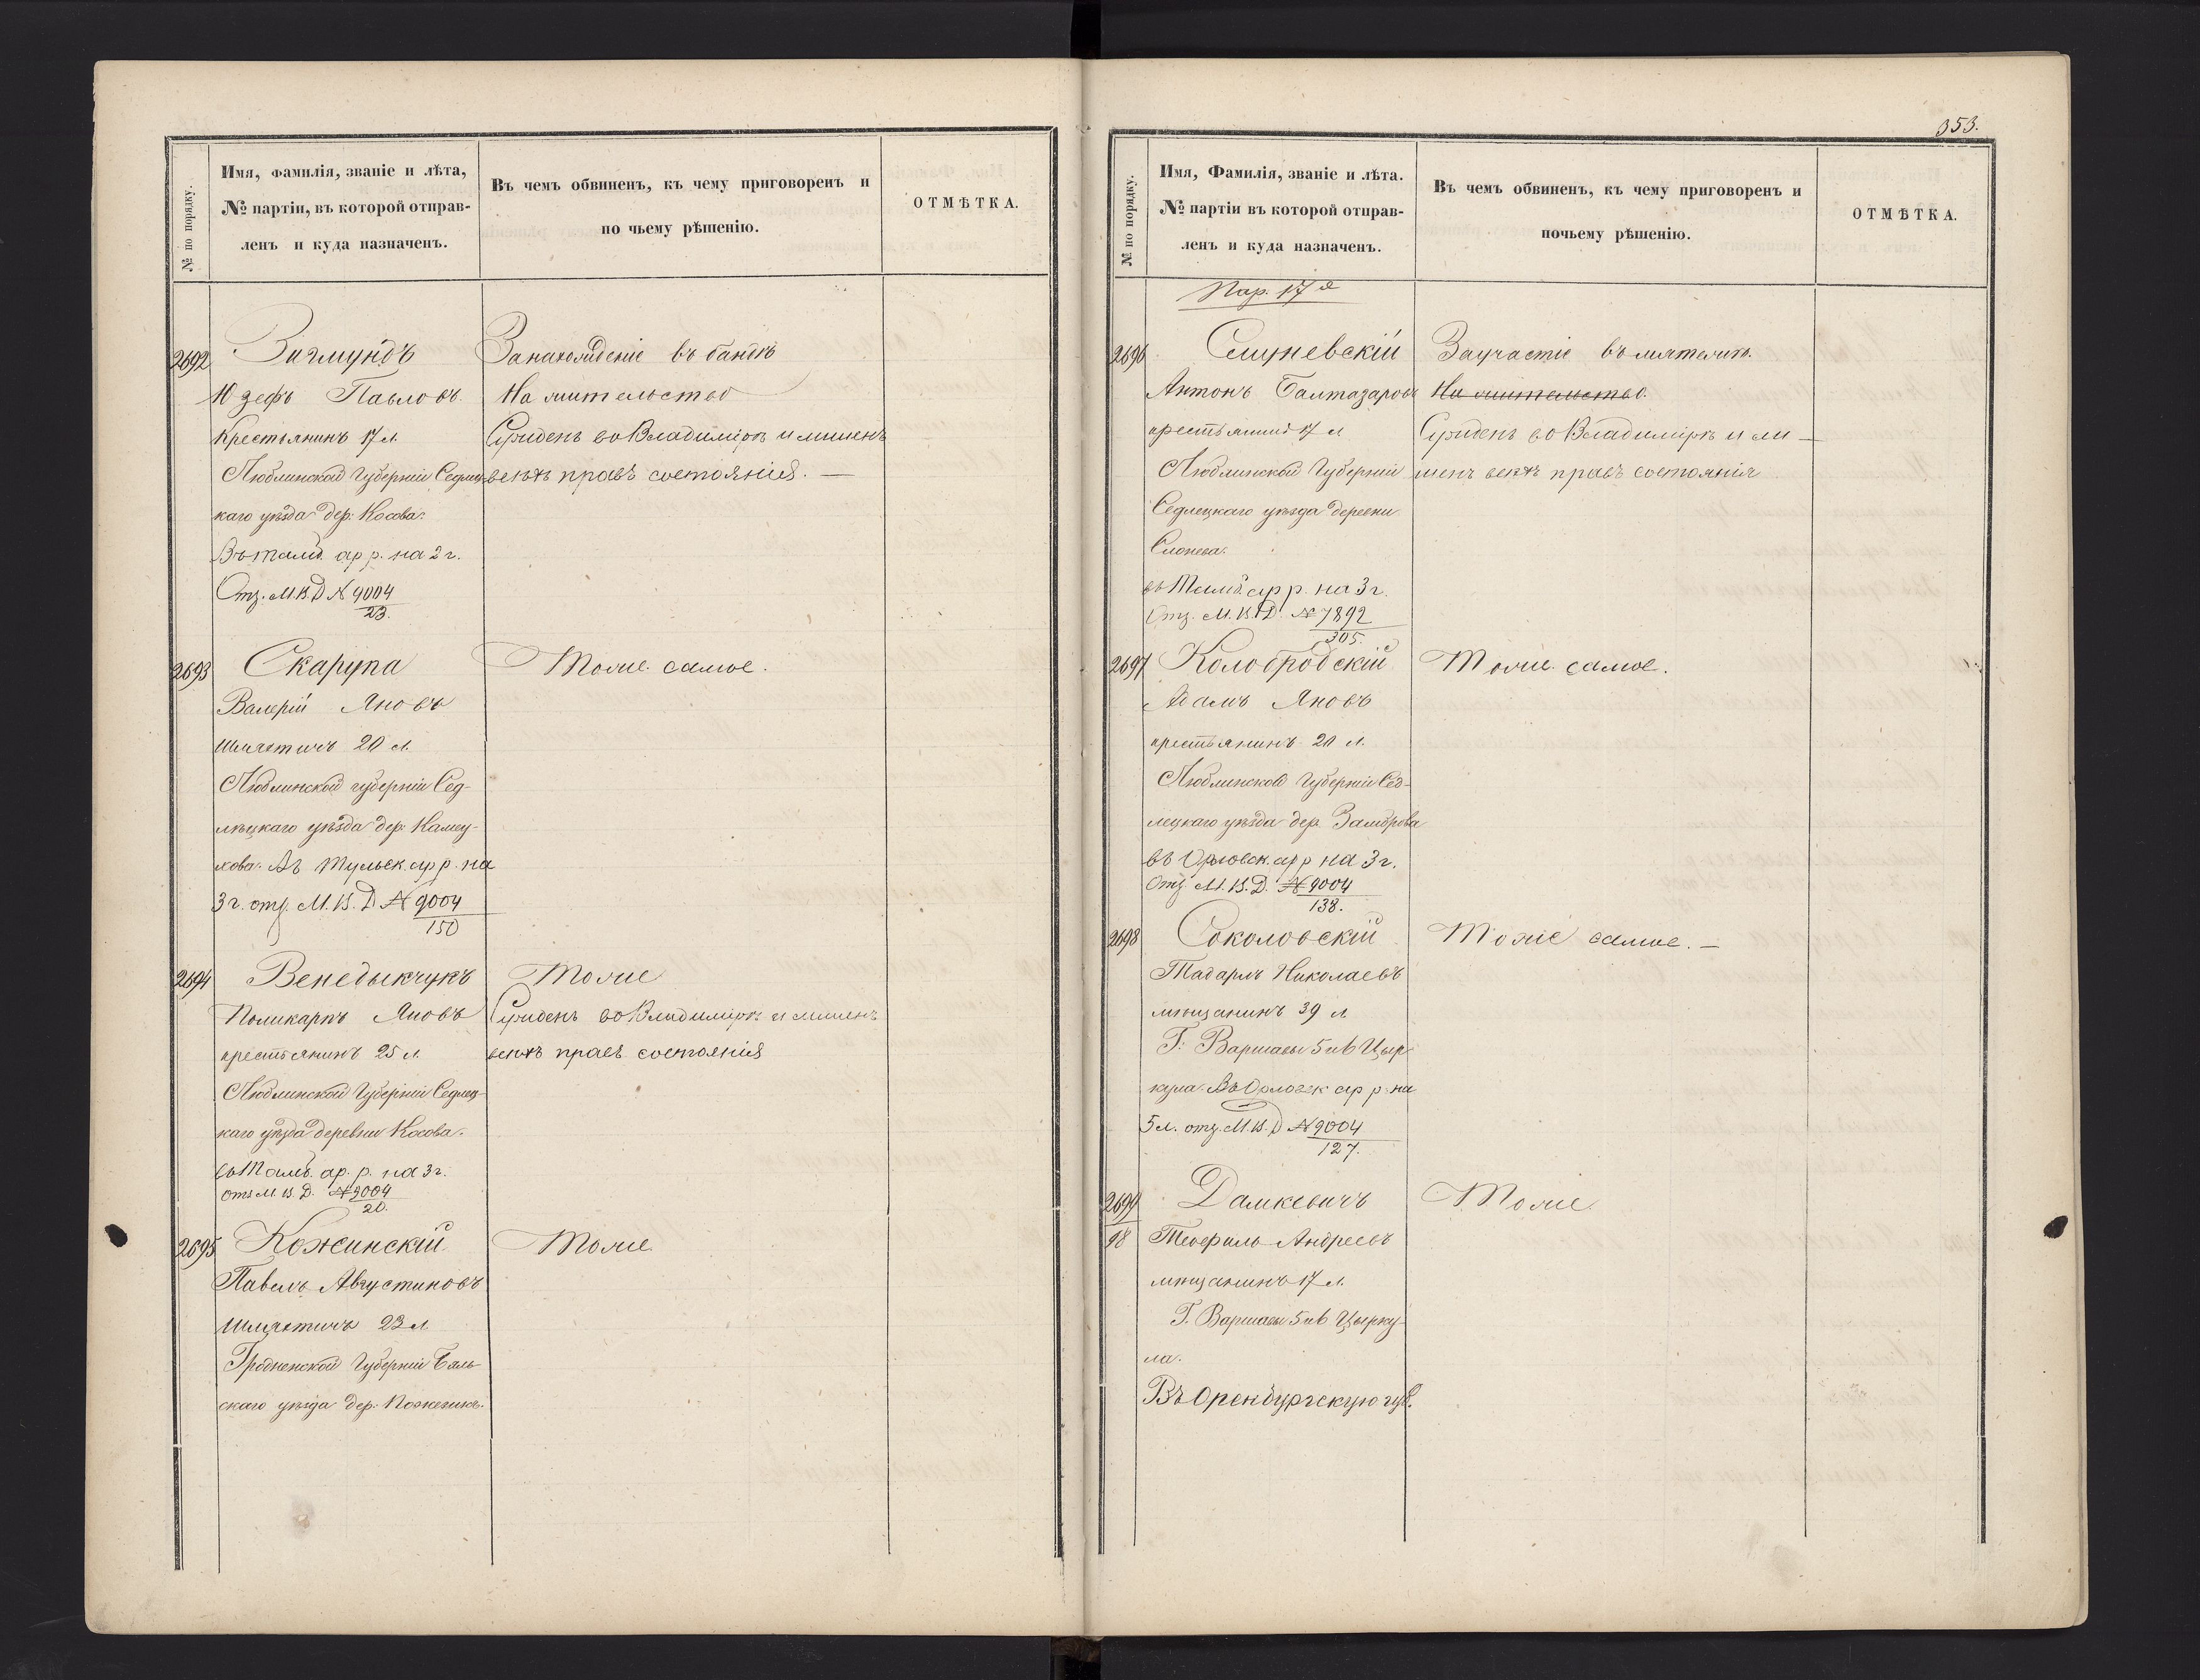 № по порядку.
Имя, фамилія, званіе и лѣта,
№ партіи, въ которой отправ-
ленъ и куда назначенъ.
Въ чемъ обвиненъ, къ чему приговоренъ и
по чьему рѣшенію.
ОТМѢТКА.
2692
Зигмундъ
Юзефъ Павловъ
Крестьянинъ 17 л.
Люблинской Губерніи Седлец-
каго уѣзда дер: Косова.
Въ тамб. ар р. на 2 г.
Отз. М.В.Д № 9004
23.
За нахожденіе въ бандѣ
На жительство
Сужденъ во Владимірѣ и лишенъ
всѣхъ правъ состоянія. —
2693
Скарупа
Валерій Яновъ
шляхтичъ 20 л.
Люблинской губерніи Сед-
лѣцкаго уѣзда дер:
хова. Въ Тульск. ар р. на
3 г. отз. М.В.Д № 9004
150
Тоже самое.
2694
Венедыкчукъ
Поликарпъ Яновъ
крестьянинъ 25 л.
Люблинской Губерніи Седлец-
каго уѣзда деревни Косова.
въ Тамб. ар. р. на 3 г.
отз М.В.Д. № 9004
20.
Тоже
Сужденъ во Владимірѣ и лишенъ
всѣхъ правъ состоянія
2695
Кожинскій
Павелъ Августиновъ
Шляхтичъ 23 л.
Гродненской Губерніи Бѣль-
скаго уѣзда дер:
Тоже
353.
№ по порядку.
Имя, Фамилія, званіе и лѣта.
№ партіи въ которой отправ-
ленъ и куда назначенъ.
Въ чемъ обвиненъ, къ чему приговоренъ и
почьему рѣшенію.
ОТМѢТКА.
Пар. 17я
2696
Антонъ Балтазаровъ
крестьянинъ 17 л
Люблинской Губерніи
Седлецкаго уѣзда деревни
въ Тамб. ар р. на 3 г.
Отз. М.В.Д. № 7892
305.
За участіе въ мятежѣ.
На жительство.
Сужденъ во Владимірѣ и ли-
шенъ всѣхъ правъ состоянія
2697
Колобродскій
Адамъ Яновъ
крестьянинъ 20 л.
Люблинской Губерніи Сед-
лецкаго уѣзда дер. Замброва
въ Орловск. ар р на 3 г.
Отз М.В.Д. № 9004
138.
Тоже самое.
2698
Соколовскій
Николаевъ
мѣщанинъ 39 л.
Г: Варшавы 5 и 6 Цыр
кула. Въ ар р. на
5 л. отз. М.В.Д № 9004
127.
Тоже самое. —
2699
98
Дамкевичъ
Теофиль Андреевъ
мѣщанинъ 17 л.
Г. Варшавы 5 и 6 Цырку-
ла.
Въ Оренбургскую губ.
Тоже